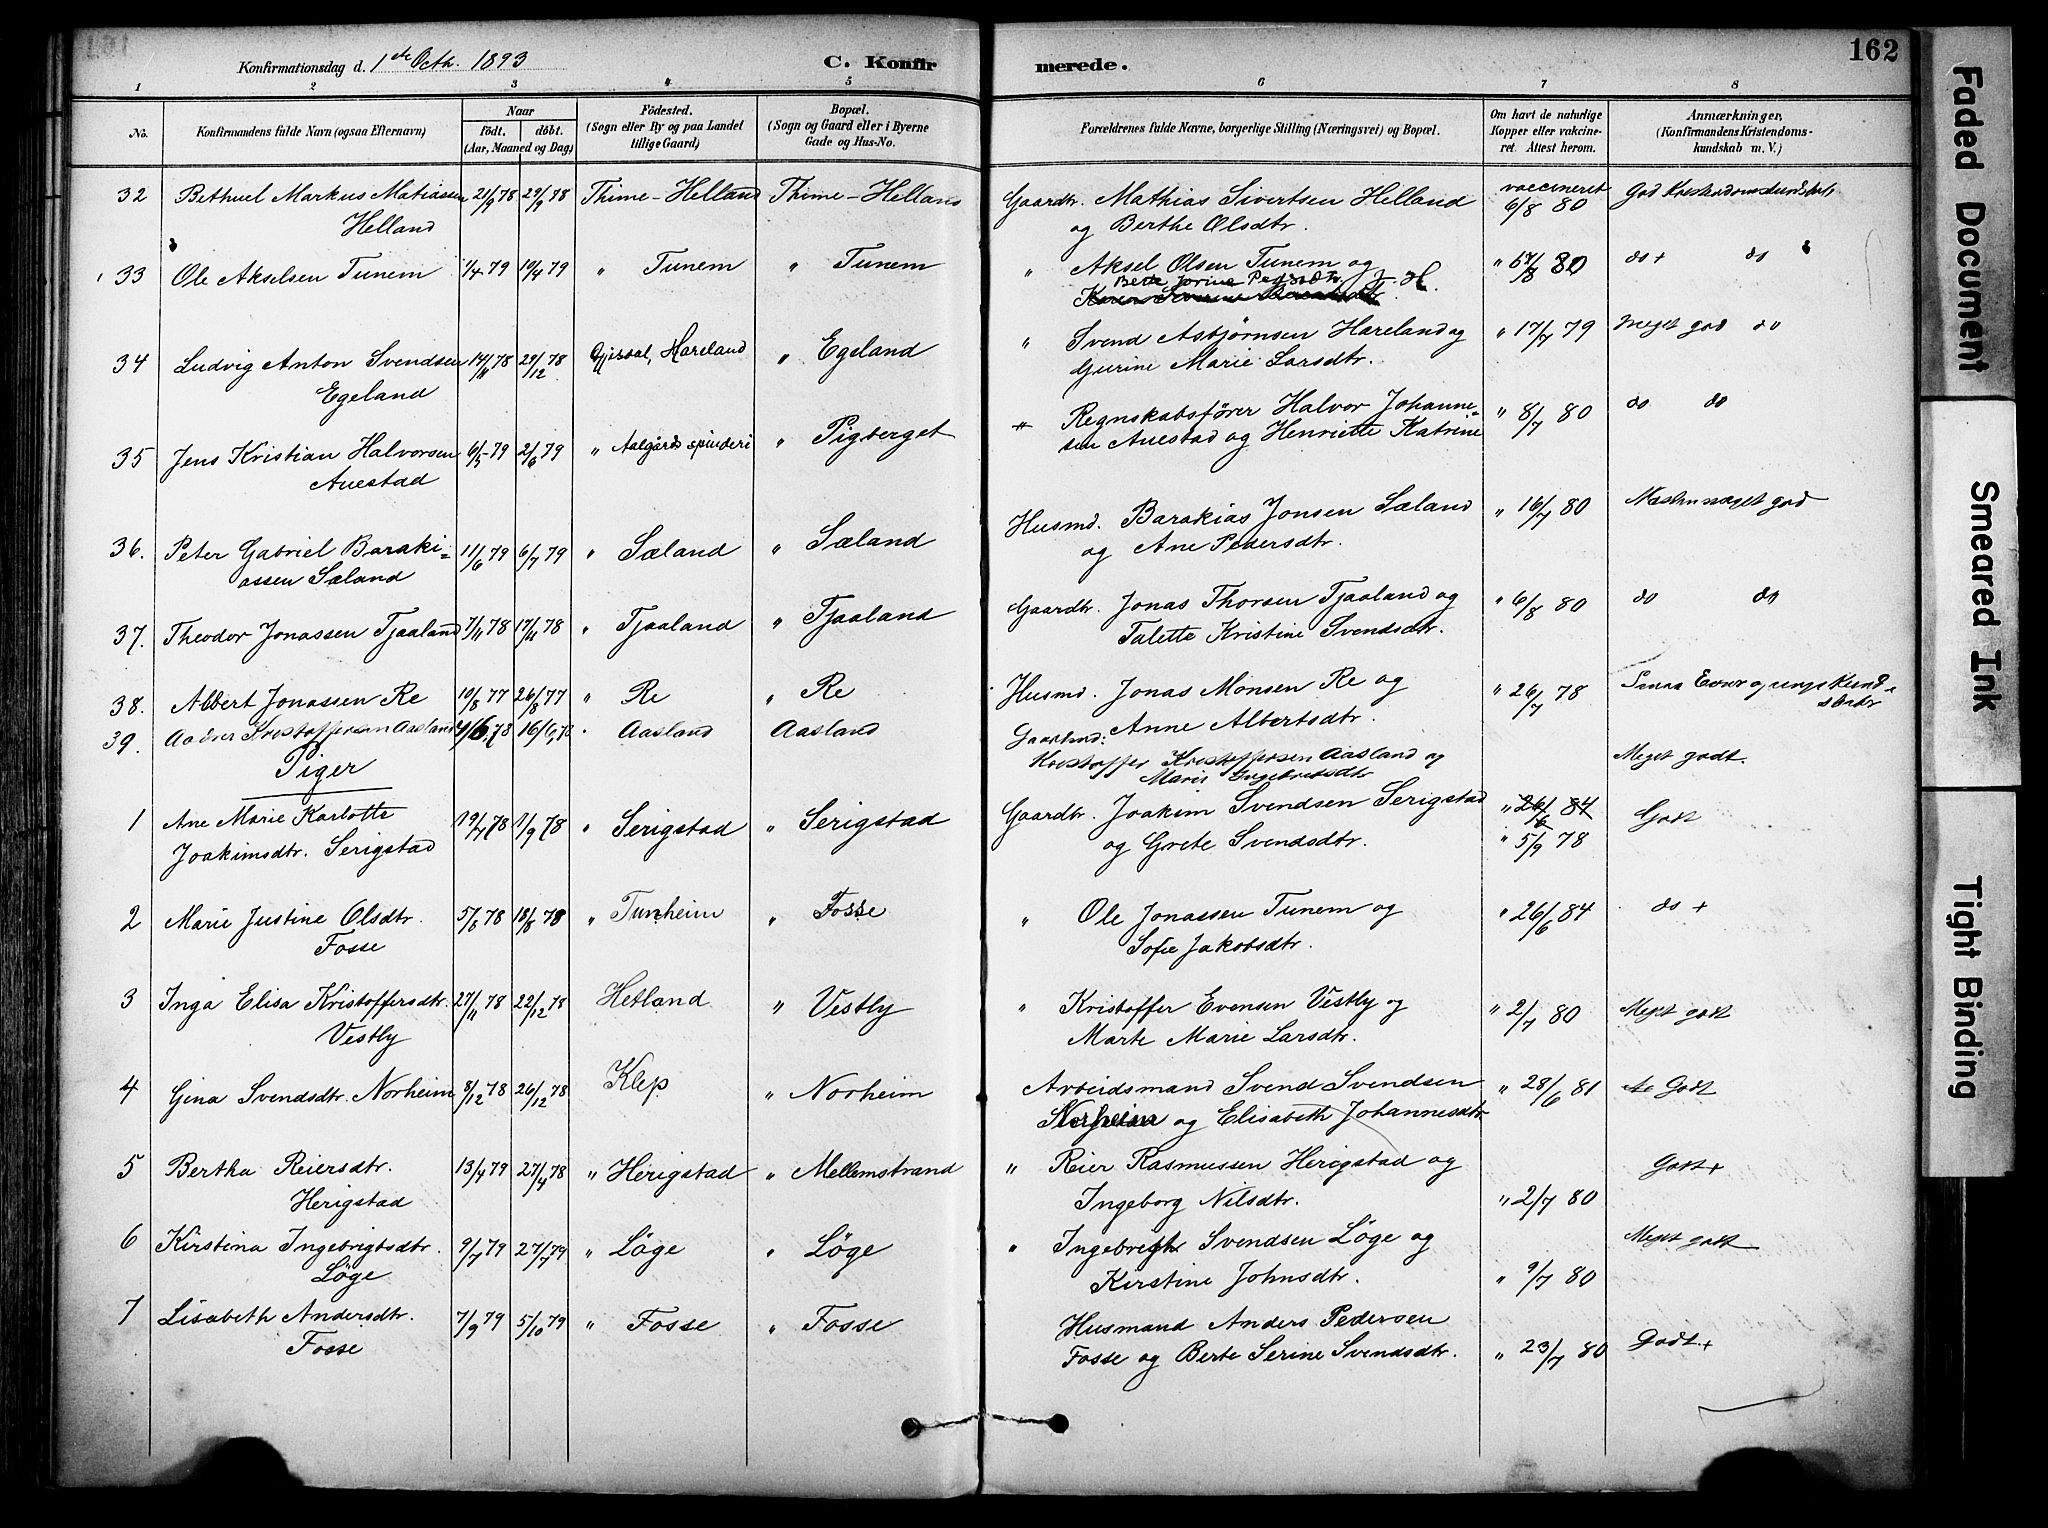 162
Konfirmationsdag d. 1ste Octb. 1893 C. Konfirmerede.
1 2 3 4 5 6 7 8
No.
Konfirmandens fulde Navn (ogsaa Efternavn)
Naar
födt. döbt.
(Aar, Maaned og Dag)
Födested.
(Sogn eller By og paa Landet
tillige Gaard)
Bopæl.
(Sogn og Gaard eller i Byerne
Gade og Hus-No.
Forældrenes fulde Navne, borgerlige Stilling (Næringsvei) og Bopæl.
Om havt de naturlige
Kopper eller vakcine-
ret. Attest herom.
Anmærkninger,
(Konfirmandens Kristendoms-
kundskab m. V.)
32 Bethuel Markus Matiassen 21/9 78 29/9 78 Thime-Helland Thime-Helland Gaardbr. Mathias Sivertsen Helland vaccineret 6/8 80 God Kristendomskundskab
Helland og Berthe Olsdtr.
33 Ole Akselsen Tunem 1/4 79 19/4 79 " Tunem " Tunem " Aksel Olsen Tunem og " 80 do + do
Berte Jorine Pedersdtr.
34 Ludvig Anton Svendsen 14/11 78 29/12 78 Gjesdal, Hareland " Egeland " Svend Asbjørnsen Hareland og " 17/7 79 Meget god do
Egeland Gurine Marie Larsdtr.
35 Jens Kristian Halvorsen 6/5 79 2/6 79 " Aalgaards spinderi " Pigberget " Regnskabsfører Halvor Johanne- " 8/7 80 do do
Auestad sen Auestad og Henriette Katrine
36. Peter Gabriel Baraki- 11/6 79 6/7 79 " Sæland " Sæland Husmd. Barakias Jonsen Sæland " 16/7 80 Næsten meget god
assen Sæland og Ane Pedersdtr.
37. Theodor Jonassen Tjaaland 7/11 78 17/11 78 " Tjaaland " Tjaaland Gaardbr. Jonas Thorsen Tjaaland og " 6/8 80 do do
Talette Kristine Svendsdtr.
38. Albert Jonassen Re 10/8 77 26/8 77 " Re " Re Husmd. Jonas Monsen Re og " 26/7 78
Anne Albertsdtr.
39. Kristoffersen Aasland 78 16/6 78 " Aasland Aasland Gaardmd: Meget godt.
Kristoffer Kristoffersen Aasland og
Marie Ingebretsdtr
Piger
1 Ane Marie Karlotte 19/7 78 1/9 78 " Serigstad " Serigstad Gaardbr. Joakim Svendsen Serigstad " 26/6 84 Godt
Joakimsdtr. Serigstad og Grete Svendsdtr. " 5/9 78
2 Marie Justine Olsdtr. 5/8 78 18/8 78 " Tunheim " Fosse " Ole Jonassen Tunem og " 26/6 84 do +
Fosse Sofie Jakobsdtr.
3 Inga Elisa Kristoffersdtr. 27/11 78 22/12 78 Hetland " Vestly " Kristoffer Evensen Vestly og " 2/7 80 Meget godt
Vestly Marte Marie Larsdtr.
4 Gina Svendsdtr. Norheim 8/12 78 26/12 78 Klep " Norheim Arbeidsmand Svend Svendsen " 28/6 81 Godt
Norheim og Elisabeth Johannesdtr
5 Bertha Reiersdtr. 13/4 79 27/4 78 " Herigstad " Mellemstrand " Reier Rasmussen Herigstad og Godt +
Herigstad Ingeborg Nilsdtr. " 2/7 80
6 Kirstina Ingebrigtsdtr. 9/7 79 27/7 79 " Löge " Löge " Ingebregt Svendsen Löge og Meget godt
Löge Kirstine Johnsdtr. " 9/7 80
7 Lisabeth Andersdtr. 7/9 79 5/10 79 " Fosse " Fosse Husmand Anders Pedersen
Fosse Fosse og Berte Serine Svendsdtr. " 23/7 80 Godt +
Faded Document
Smeared Ink
Tight Binding